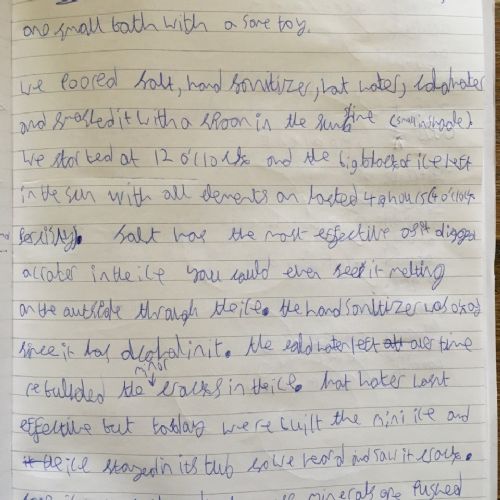 one small bath with a same toy.
we poored salt, hand sonitizer, hot water, cold water
and smashed it with a spoon in the sunshine (small in shade).
we started at 12 o'clock and the big block of ice left
in the sun with all elements on lasted 4 hours (4 o'clock
salt was the most effective as it digged
a crater in the ice you could even see it melting
on the outside through the ice. the hand sonitizer was good
since it has alcohol in it. the cold water left over time
rebuilded the minor cracks in the ice. hot water wasnt
effective but today we rebuilt the mini ice and
the ice stayed in its tub so we heard and saw it crack.
minerals are pushed